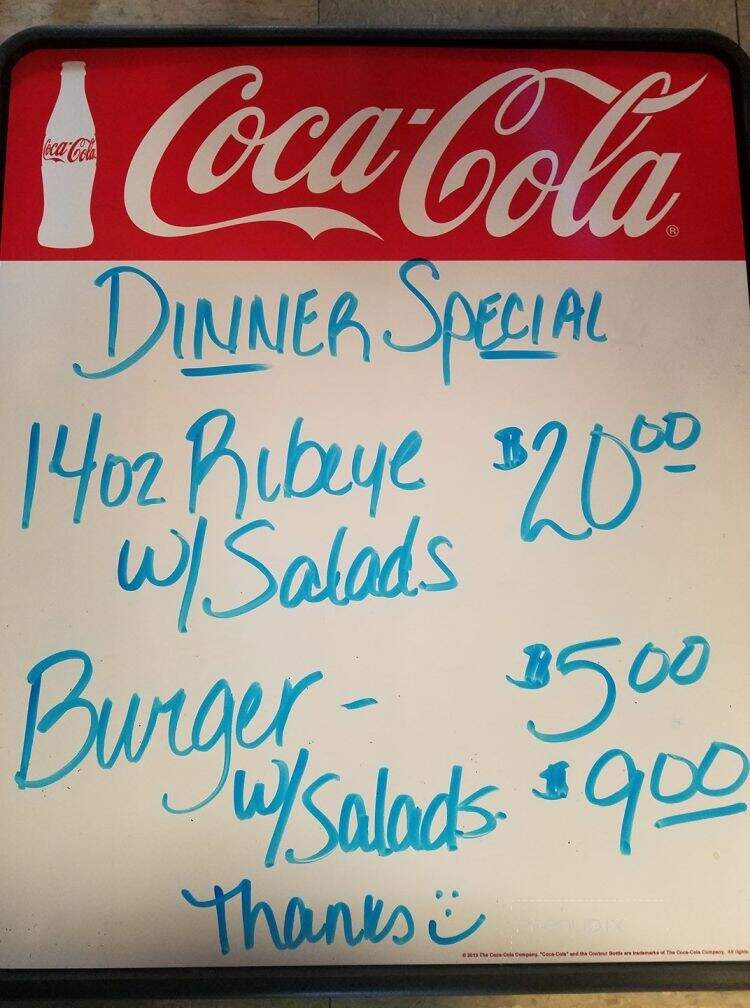 Coca-Cola
Coca-Cola®
DINNER SPECIAL
14oz Ribeye $20.00
w/Salads
Burger - $5.00
w/Salads. $9.00
Thanks
© 2019 The Coca-Cola Company. "Coca-Cola" and the Contour Bottle are trademarks of The Coca-Cola Company. All rights